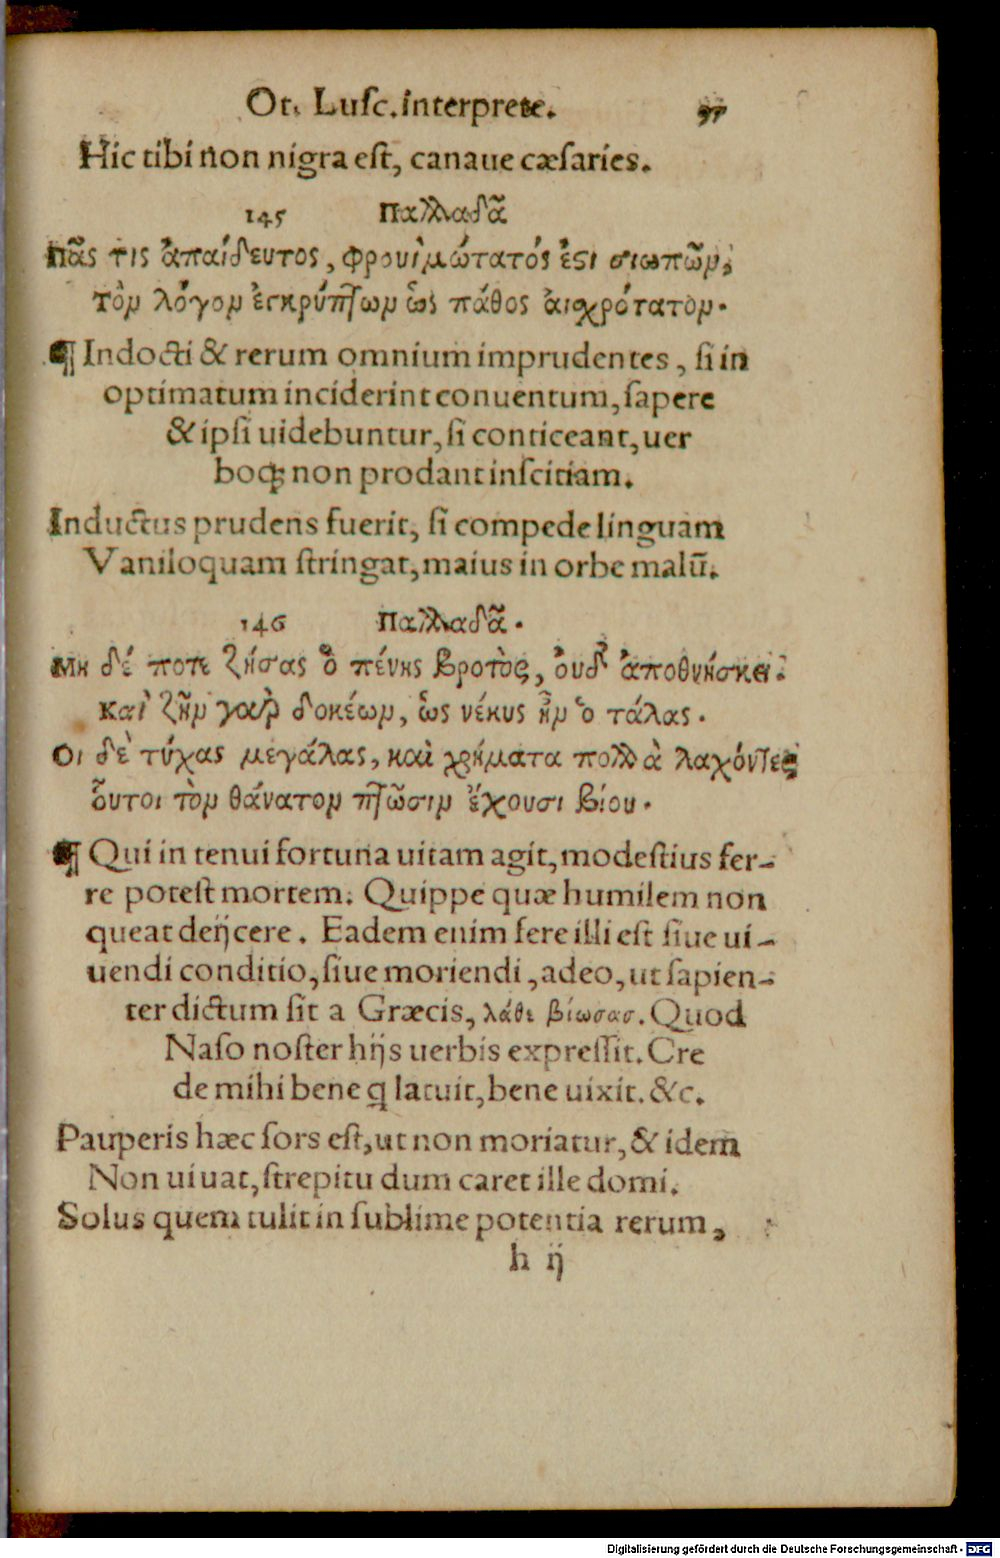 Ot. Lusc. interprete. 57
Hic tibi non nigra est, canaue cæsaries.
145 Παλλαδᾶ
Πᾶς τις ἀπαίδευτος, φρονιμώτατός ἐστι σιωπῶν,
Τὸν λόγον ἐγκρύπτων ὡς πάθος αἰσχρότατον.
¶ Indocti & rerum omnium imprudentes, si in
optimatum inciderint conuentum, sapere
& ipsi uidebuntur, si conticeant, uer
boq; non prodant inscitiam.
Inductus prudens fuerit, si compede linguam
Vaniloquam stringat, maius in orbe malũ.
146 Παλλαδᾶ.
Μὴ δέ ποτε ζήσας ὁ πένης βροτὸς, ὀυδ' ἀποθνήσκει.
Καὶ ζῆν γαρ δοκέων, ὡς νέκυς ἦν ὁ τάλας.
Οι δὲ τύχας μεγάλας, καὶ χρήματα πολλὰ λαχόντες
οὗτοι τὸν θάνατον πτῶσιν ἔχουσι βίου.
¶ Qui in tenui fortuna uitam agit, modestius fer-
re potest mortem. Quippe quæ humilem non
queat deijcere. Eadem enim fere illi est siue ui-
uendi conditio, siue moriendi, adeo, ut sapien-
ter dictum sit a Græcis, λάθε βίωσας. Quod
Naso noster hijs uerbis expressit. Cre
de mihi bene q latuit, bene uixit. &c.
Pauperis hæc sors est, ut non moriatur, & idem
Non uiuat, strepitu dum caret ille domi.
Solus quem tulit in sublime potentia rerum,
h ij
Digitalisierung gefördert durch die Deutsche Forschungsgemeinschaft - DFG